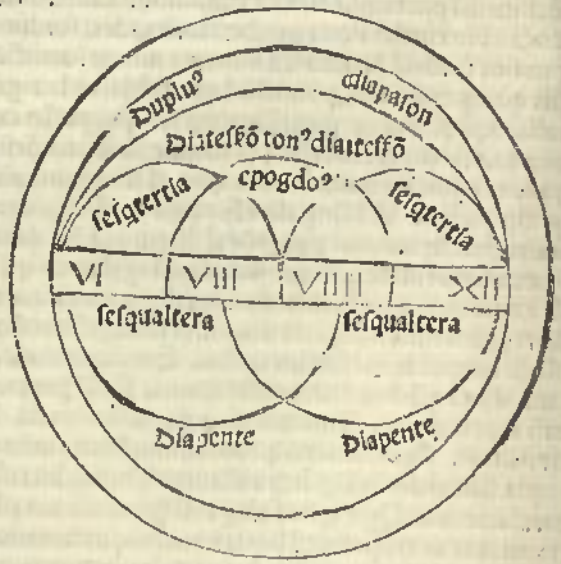 Duplu⁹ diapason
Diatesſkō ton⁹ diatesſkō
ſeſqtertia epogdo⁹ ſeſqtertia
VI VIII VIIII XII
ſeſqualtera ſeſqualtera
Diapente Diapente